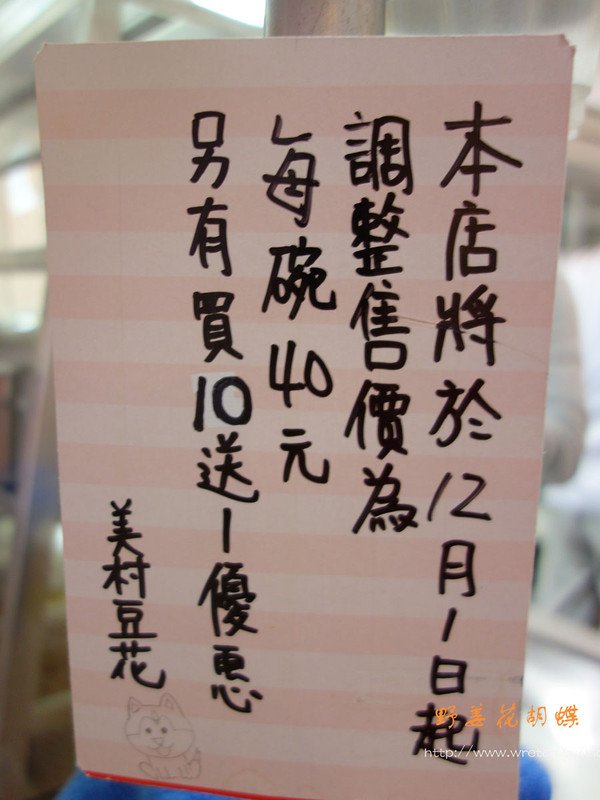 本店將於12月1日起
調整售價為
每碗40元
另有買10送1優惠
美村豆花
野薑花胡蝶
http://www.wretch